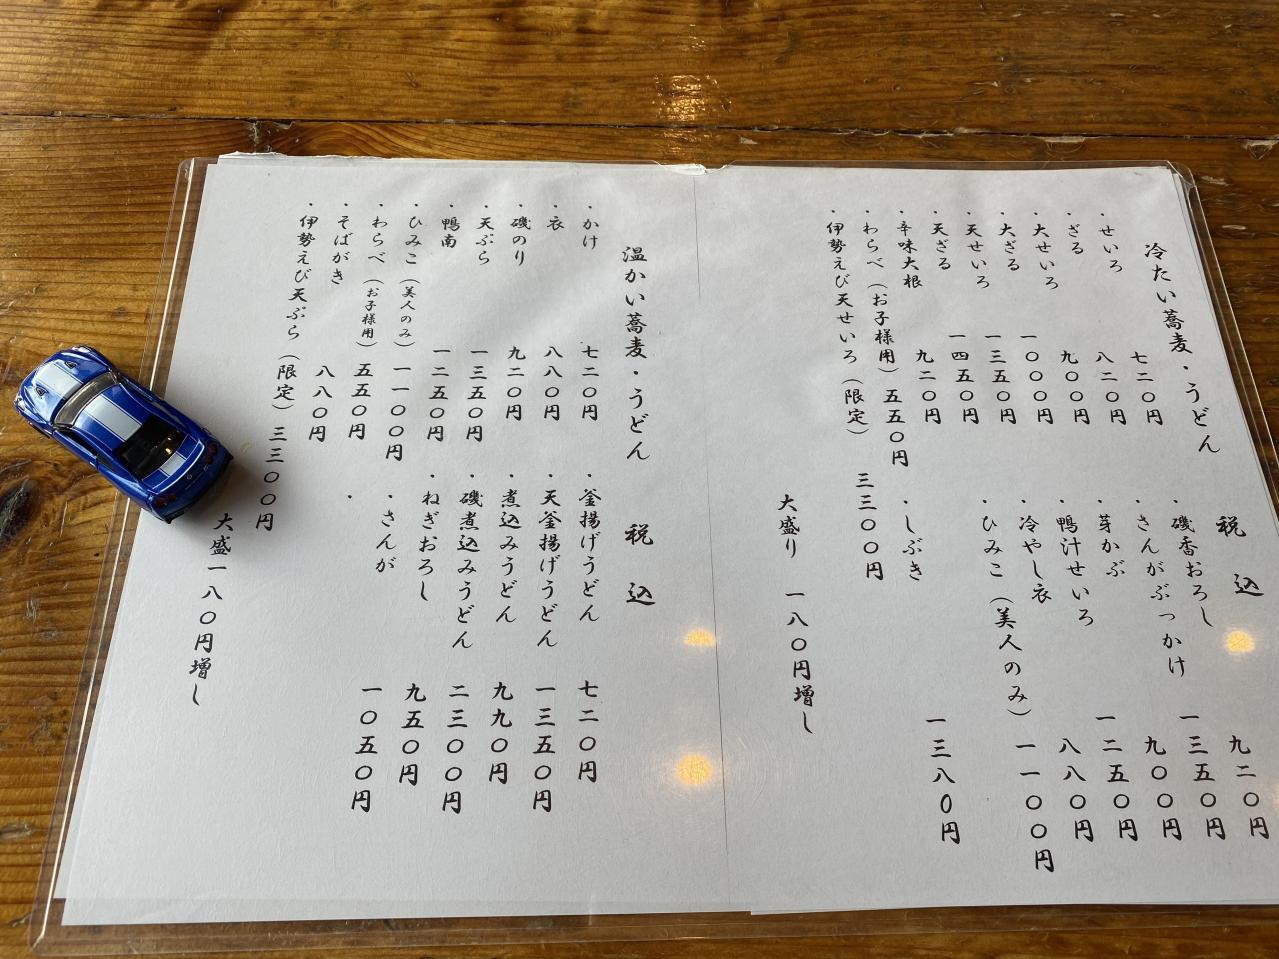 冷たい蕎麦・うどん 税込
・せいろ 七二〇円
・ざる 八二〇円
・大せいろ 九〇〇円
・大ざる 一〇〇〇円
・天せいろ 一三五〇円
・天ざる 一四五〇円
・辛味大根 九二〇円
・わらべ（お子様用）五五〇円
・伊勢えび天せいろ（限定） 三三〇〇円
・磯香おろし 九二〇円
・さんがぶっかけ 一三五〇円
・芽かぶ 九〇〇円
・鴨汁せいろ 一二五〇円
・冷やし衣 八八〇円
・ひみこ（美人のみ） 一一〇〇円
・しぶき 一三八〇円
大盛り 一八〇円増し
温かい蕎麦・うどん 税込
・かけ 七二〇円
・衣 八八〇円
・磯のり 九二〇円
・天ぷら 一三五〇円
・鴨南 一二五〇円
・ひみこ（美人のみ） 一一〇〇円
・わらべ（お子様用） 五五〇円
・そばがき 八八〇円
・伊勢えび天ぷら（限定）三三〇〇円
・釜揚げうどん 七二〇円
・天釜揚げうどん 一三五〇円
・煮込みうどん 九九〇円
・磯煮込みうどん 二三〇〇円
・ねぎおろし 九五〇円
・さんが 一〇五〇円
・
大盛一八〇円増し